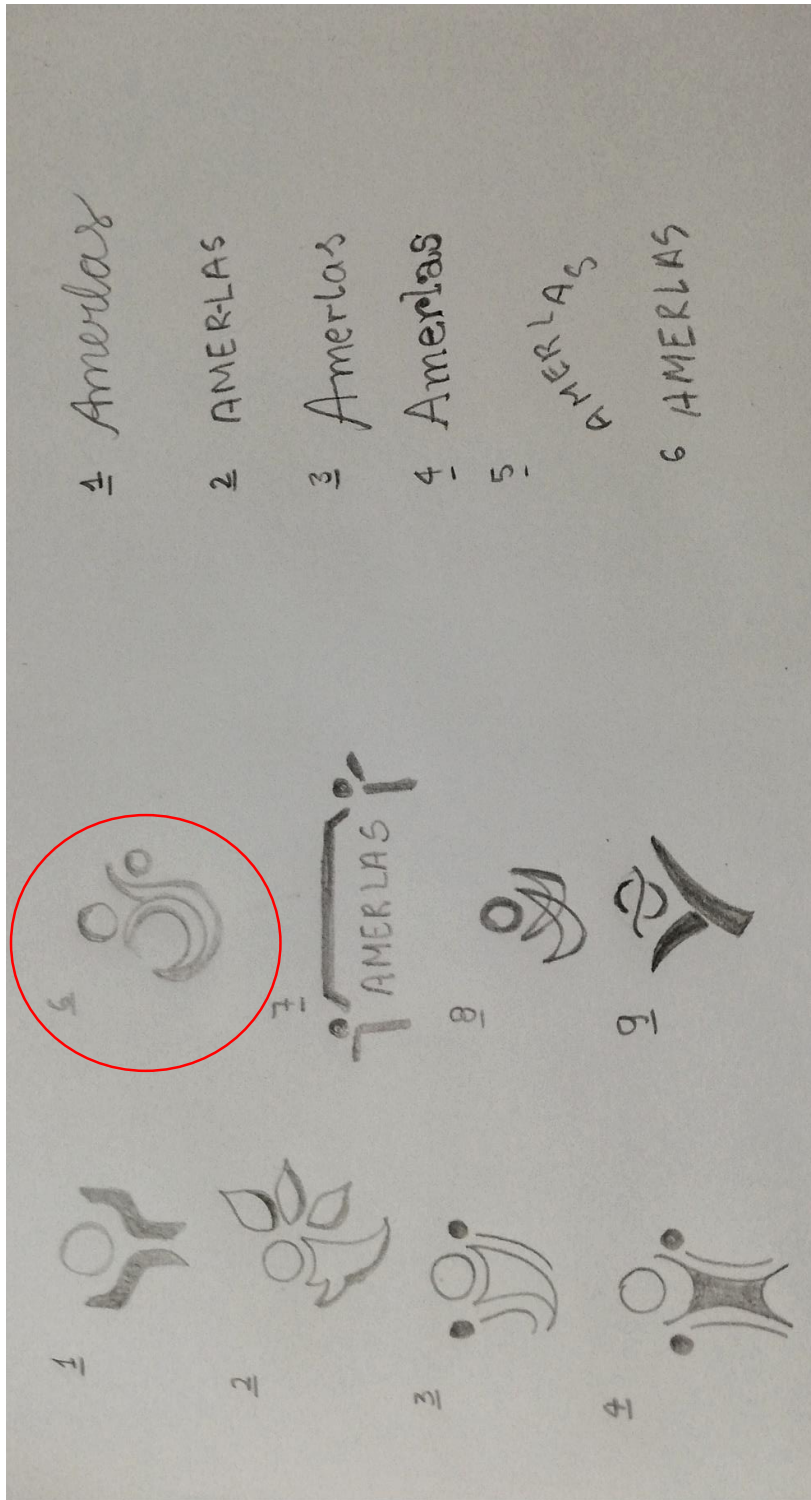 1
2
3
4
6
7
AMERLAS
8
9
1 Amerlas
2 AMER-LAS
3 Amerlas
4 Amerlas
5 AMERLAS
6 AMERLAS